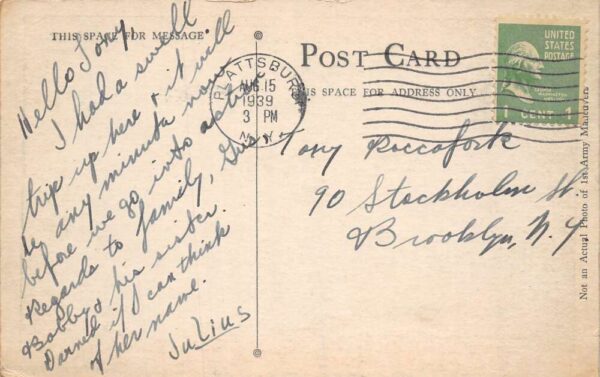 THIS SPACE FOR MESSAGE
Hello Tony,
I had a swell
trip up here & it will
be any minute now
before we go into action.
Regards to family, Gus,
Bobby & his sister.
Darned if I can think
of her name.
Julius
PLATTSBURG
AUG 15
1939
3 PM
N.Y.
POST CARD
THIS SPACE FOR ADDRESS ONLY
UNITED
STATES
POSTAGE
1 CENT 1
Tony Roccafork
90 Stockholm St.
Brooklyn, N.Y.
Not an Actual Photo of 1st Army Maneuvers